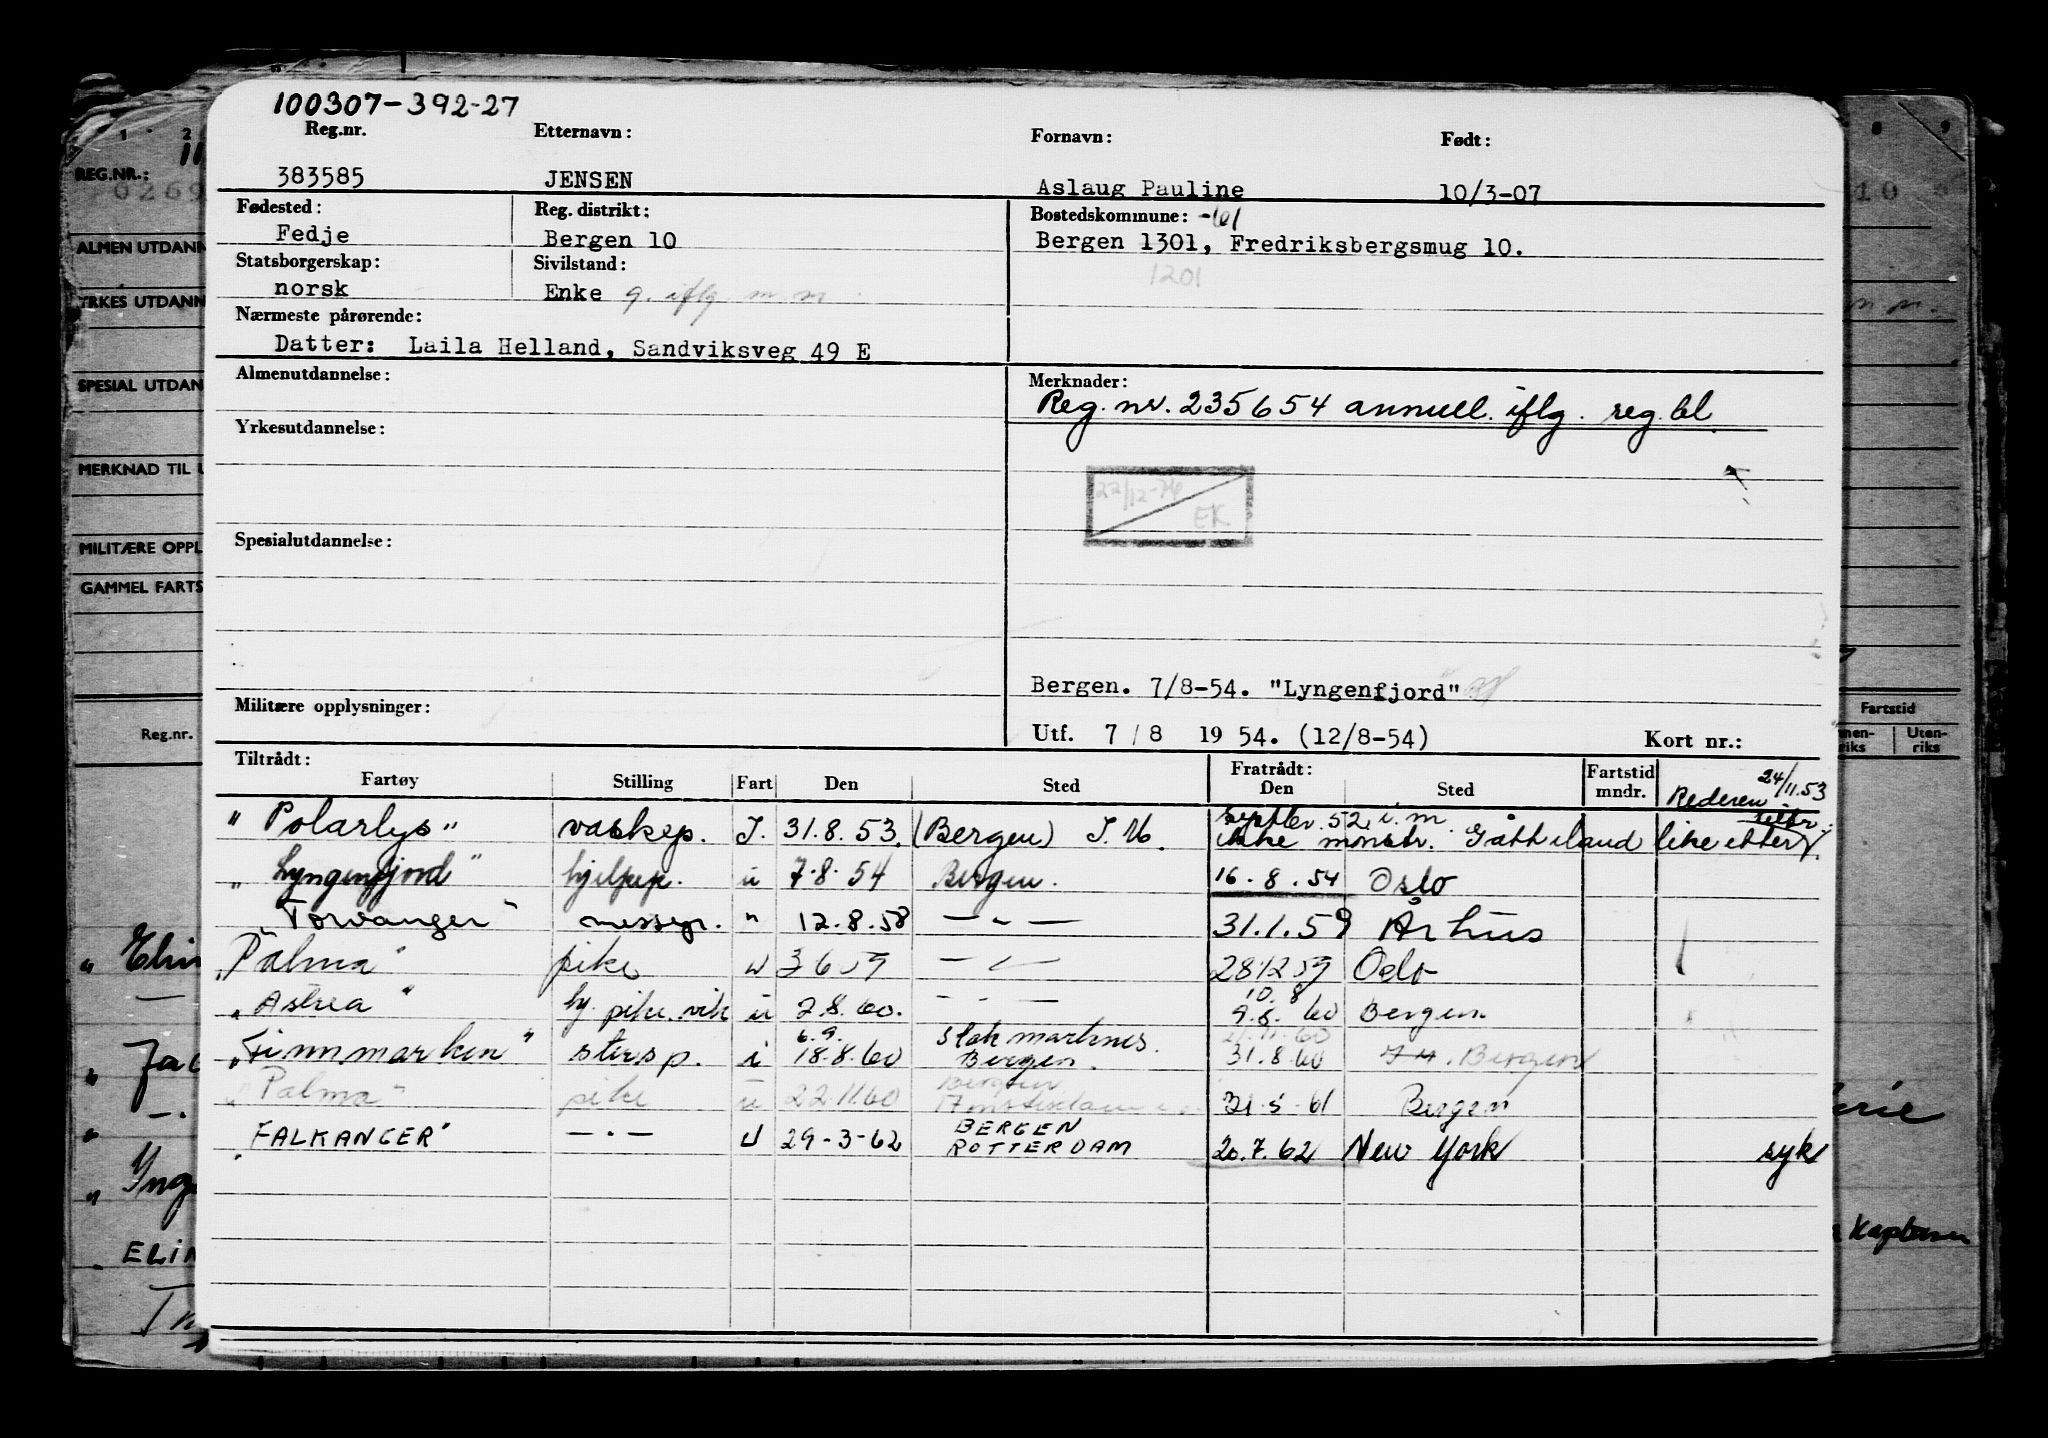 100307-392-27
Reg.nr. Etternavn: Fornavn: Født:
383585 JENSEN Aslaug Pauline 10/3-07
Fødested: Reg. distrikt: Bostedskommune: -61
Fedje Bergen 10 Bergen 1301, Fredriksbergsmug 10.
1201
Statsborgerskap: Sivilstand:
norsk Enke g. iflg. m.m.
Nærmeste pårørende:
Datter: Laila Helland, Sandviksveg 49 E
Almenutdannelse: Merknader:
Reg. nr. 235654 annull. iflg. reg.bl.
Yrkesutdannelse:
22/12-76
EK
Spesialutdannelse:
Bergen. 7/8-54. "Lyngenfjord"
Militære opplysninger:
Utf. 7/8 1954. (12/8-54) Kort nr.:
Tiltrådt: Fratrådt:
Fartøy Stilling Fart Den Sted Den Sted Fartstid mndr. Rederen 24/11.53
"Polarlys" vaskep. I. 31.8.53. (Bergen) septbr. 52 i.m.
ikke mønstr. Gått iland like etter
"Lyngenfjord" hjelpep. u 7.8.54 Bergen. 16.8.54 Oslo
"Torvanger" messep. " 12.8.58 — " — 31.1.59 Århus
"Palma" pike u 3 6 59 — " — 28 12 59 Oslo
10. 8
"Astrea" hj. pike. vik u 2.8.60. — " — 9.8.60 Bergen
6.9. Stokmarknes.
"Finnmarken" stersp. i 18.8.60 Bergen. 31.8.60 Bergen
"Palma" pike u 22.11.60 Bergen 21-5-61 Bergen
"FALKANGER" — . — U 29-3-62 BERGEN
ROTTERDAM 20.7.62 New York syk
REG.NR.:
0269
ALMEN UTDANN
YRKES UTDANN
SPESIAL UTDAN
MERKNAD TIL
MILITÆRE OPPL
GAMMEL FARTS
Reg.nr.
Fartstid
Uten-
riks
ELIN
Kaptein